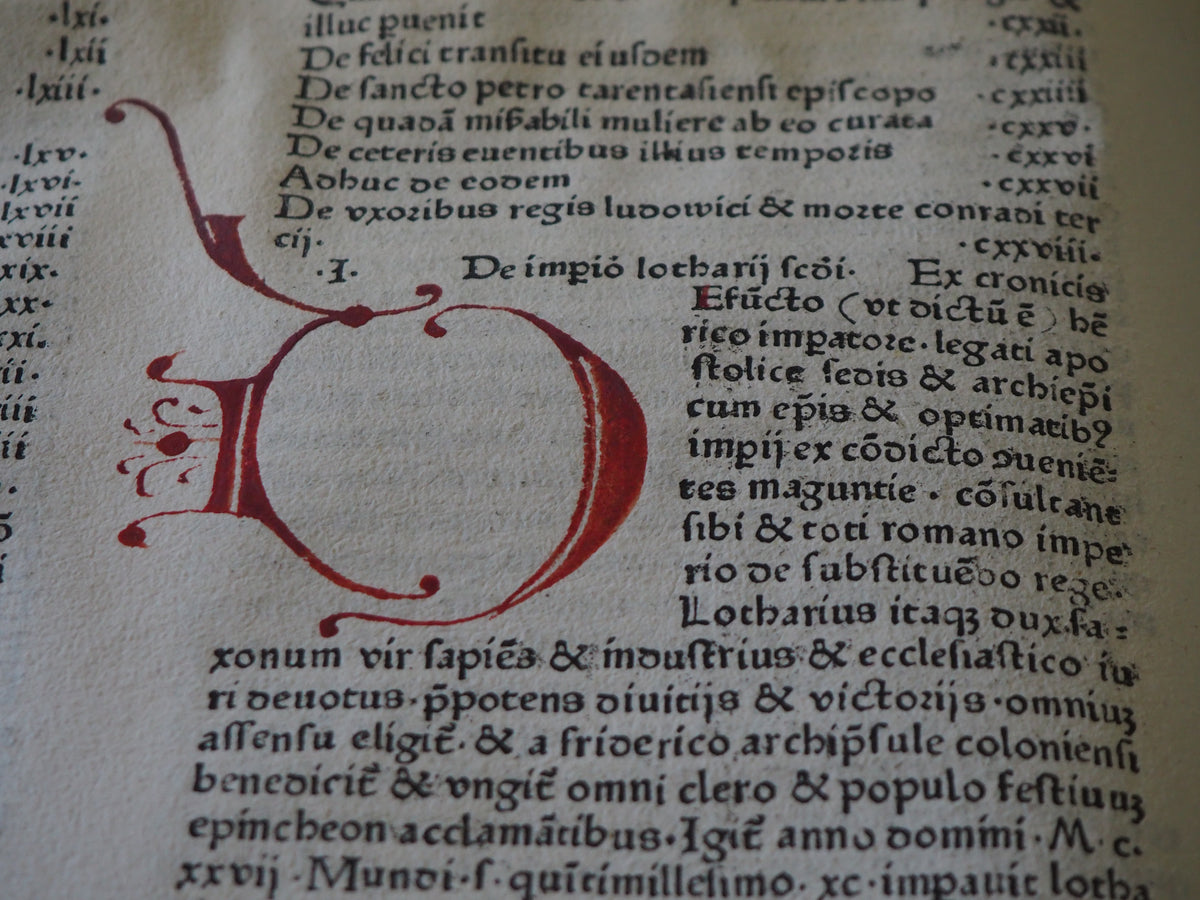 ·lxi·
·lxii
·lxiii·
·lxv·
·lxvi·
lxvii
xviii
xix·
xx·
xxi·
ii·
iii
ii
illuc ꝑuenit ·cxxii·
De felici tranſitu eiuſdem ·cxxiii
De ſancto petro tarentaſienſi epiſcopo ·cxxiiii
De quadā mirabili muliere ab eo curata ·cxxv·
De ceteris euentibus illius temporis ·cxxvi
Adhuc de eodem ·cxxvii
De vxoribus regis ludowici & morte conradi ter
cij· ·cxxviii·
·I· De imꝑio lotharij ſcdi· Ex cronicis
DEfūcto (vt dictū ē) hē
rico imꝑatore· legati apo
ſtolice ſedis & archiep̄i
cum ep̄is & optimatibꝰ
imꝑij ex cōdicto ꝯueniē⸗
tes maguntie· cōſultant
ſibi & toti romano impe
rio de ſubſtituēdo rege·
Lotharius itaqꝫ dux ſa⸗
xonum vir ſapiēs & induſtrius & eccleſiaſtico iu
ri deuotus· p̄potens diuitijs & victorijs· omniuꝫ
aſſenſu eligit̄· & a friderico archip̄ſule colonienſi
benedicit̄ & vngit̄ omni clero & populo feſtiuuꝫ
epincheon acclamātibus· Igit̄ anno domini· M· c·
xxvij· Mundi·ſ· quītimilleſimo· xc· imꝑauit lotha